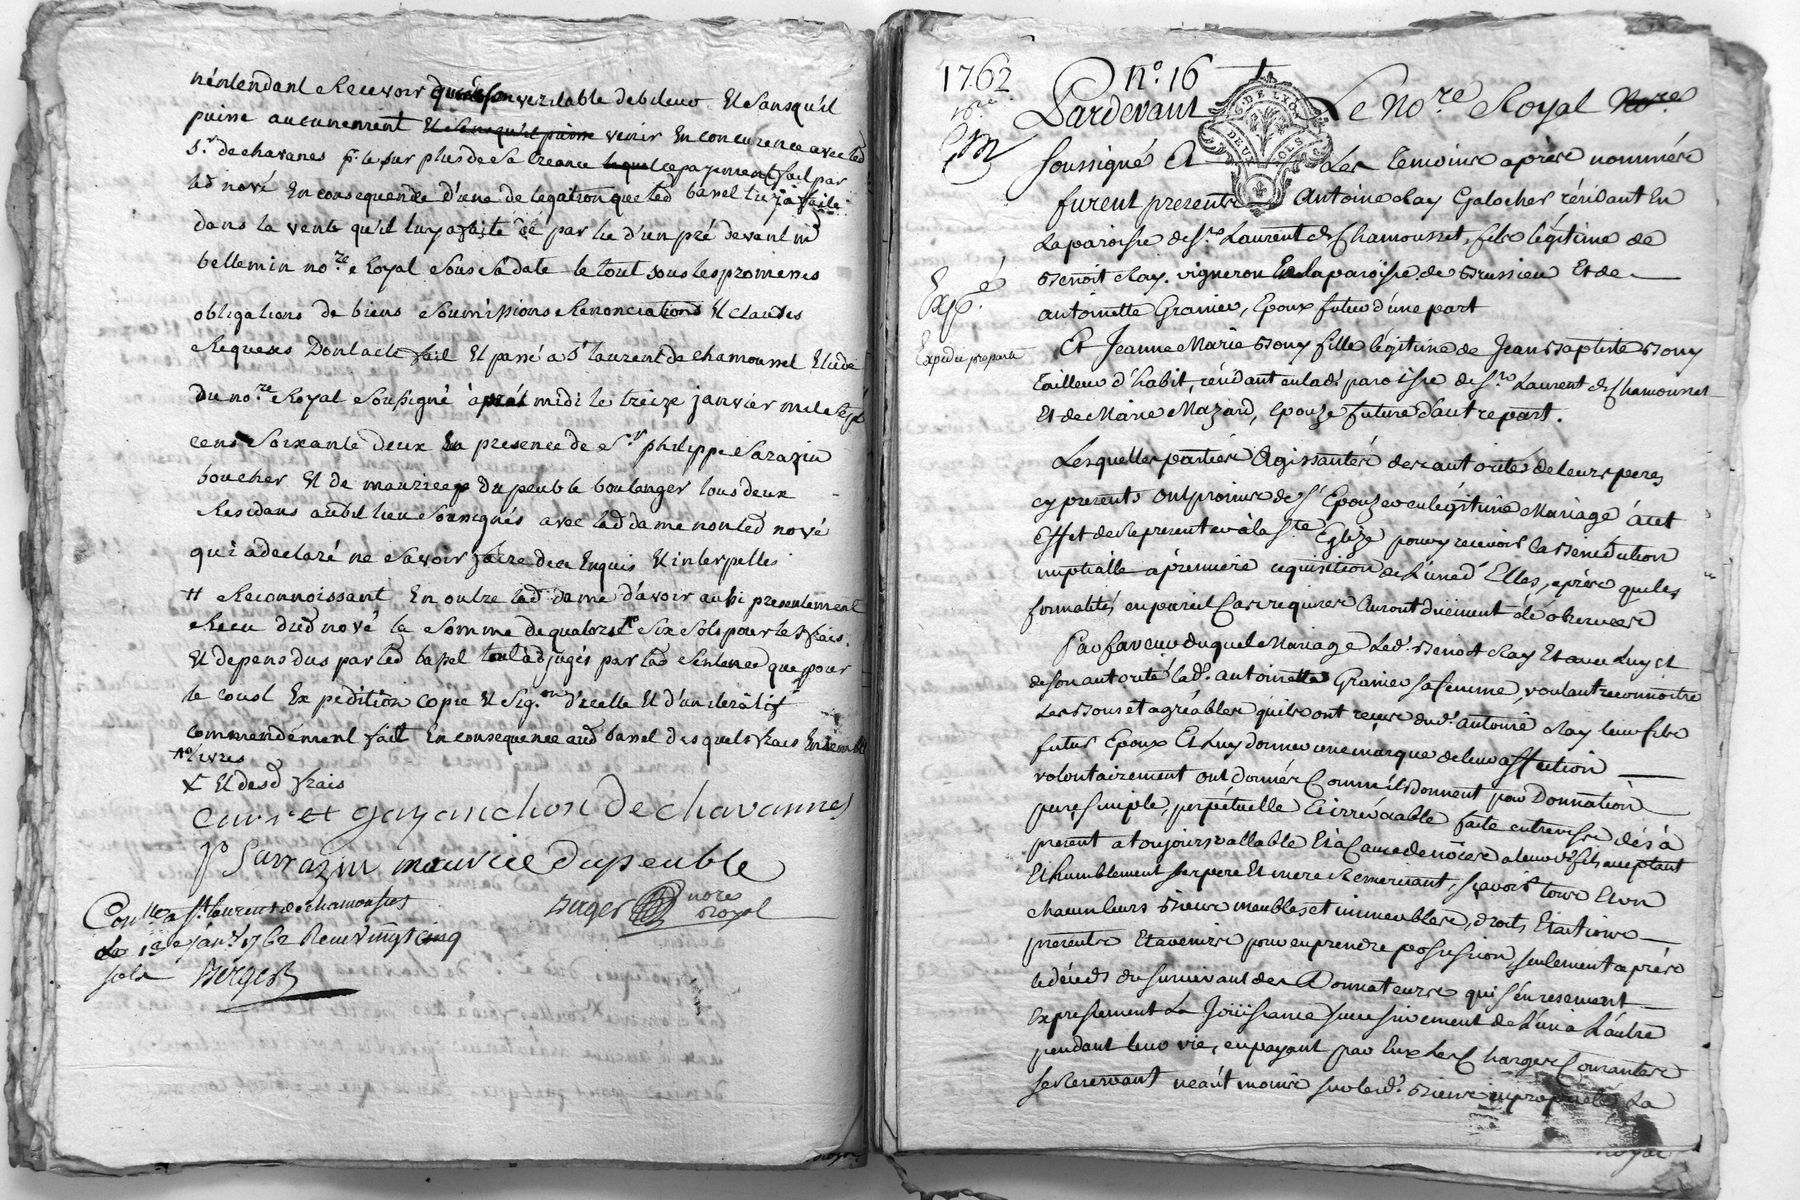 n'entendant Recevoir que son veritable debiteur Et sans qu'il
puisse aucunement Et sans qu'il puisse venir En concurence avec led
Sr. de chavanes pr. le sur plus de sa creance lequel ce payement fait par
led nové En consequence d'une delegation que led bassel luy a faite
dans la vente qu'il luy a faite de par lie d'un pré devant me
bellemin nore. Royal sous sa date le tout sous les promesses
obligations de biens soumissions Renonciations Et clauses
Requeses Dont acte fait Et passé a St laurent de chamousset Etude
Du nore Royal soussigné àprés midi le treize janvier mil sept
cens soixante deux En presence de Sr philippe Sarazin
boucher Et de maurice Dupeuble boulanger tous deux
Residans audit lieu soussignés avec lad dame non led nové
qui a declaré ne savoir faire de ce Enquis Et interpellé
# Reconnoissant En outre lad dame d'avoir aussi presentement
Receu dud nové la somme de quatorze # six sols pour les frais
Et depens dus par led bassel adjugés par lad sentence que pour
le coust Expedition copie Et sig.on d'icelle Et d'un iteratif
commendement fait En consequence aud bassel desquels frais Ensemble
livres
X Et desd frais
gayanchon De chavannes
P Sarrazin maurice dupeuble
Berger nore Royal
Conlle a St laurent de chamousset
Le 13e janv. 1762 Receu vingt cinq
sols Berger
1762 No. 16
Pardevant Le Nore Royal Nore
G. DE LYO
DEUX SOLS
soussigné Et Les temoins après nommés
furent presents Antoine Ray Galocher résidant En
La paroisse de St. Laurent de Chamousset, fils légitime de
Benoit Ray. vigneron En la paroisse de Brussieu Et de
antoinette Granier, Epoux futur d'une part
Expé.
Expedié
Et Jeanne Marie Bony fille légitime de Jean Baptiste Bony
tailleur d'habit, résidant en lad. paroisse de St. Laurent de Chamousset
Et de Marie Mazard, Epouze future d'autre part.
Lesquelles parties Agissantes des autorités de leurs peres
cy presents ont promis de s'Epouzer en légitime Mariage à cet
Effet de se presenter à la Ste. Eglize pour y recevoir la Benediction
nuptialle à première requisition de L'une d'Elles, après que les
formalités en pareil Cas requises Auront düement été observées
En faveur duquel Mariage Led. Benoit Ray Et avec Luy et
de son autorité lad. antoinette Granier sa femme, voulant reconnoitre
Les Bons et agréables qu'ils ont receus dud. Antoine Ray leur fils
futur Epoux Et Luy donner une marque de leur affection
volontairement ont donnés Comme ils donnent par Donnation
pure, simple, perpétuelle Et irrévocable faite entre vifs dés à
present a toujours vallable Et à Cause de nôces a leurd. fils acceptant
Et humblement ses pere Et mere Remerciant, sçavoir tous Et un
chacun leurs Biens meubles et immeubles, droits, Et actions
presents Et avenirs pour en prendre possession, seulement après
le décéds du survivant des Donnateurs qui s'en reservent
Expressement La Joüissance successivement de L'un à L'autre
pendant leur vie, en payant par Eux Les Charges Courantes
se Reservant néantmoins sur lesd. Biens La